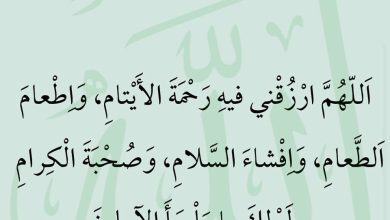 اَللّهُمَّ ارْزُقْني فيهِ رَحْمَةَ الأَيْتامِ، وَاِطْعامَ
اَلطَّعامِ، وَاِفْشاءَ السَّلامِ، وَصُحْبَةَ الْكِرامِ